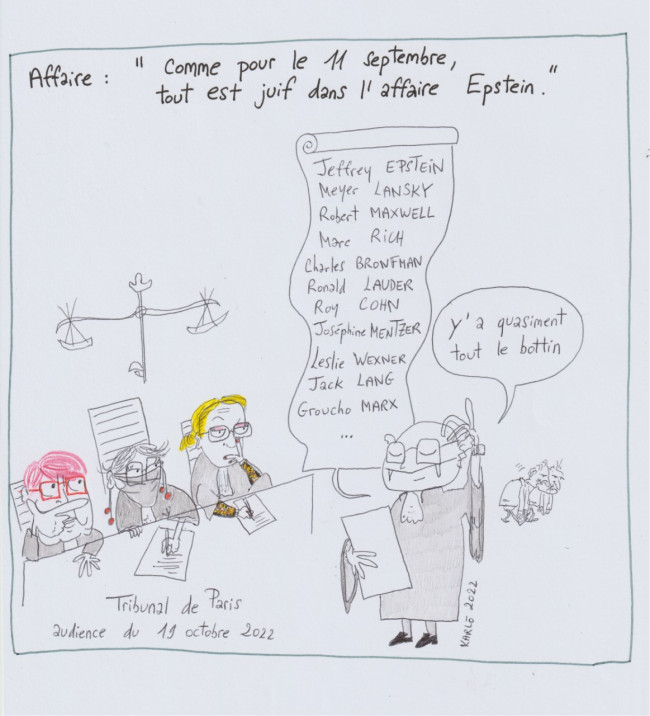 Affaire : " Comme pour le 11 septembre,
tout est juif dans l'affaire Epstein."
Jeffrey EPSTEIN
Meyer LANSKY
Robert MAXWELL
Marc RICH
Charles BRONFMAN
Ronald LAUDER
Roy COHN
Joséphine MENTZER
Leslie WEXNER
Jack LANG
Groucho MARX
...
y'a quasiment
tout le bottin
Tribunal de Paris
audience du 19 octobre 2022
KARLE 2022